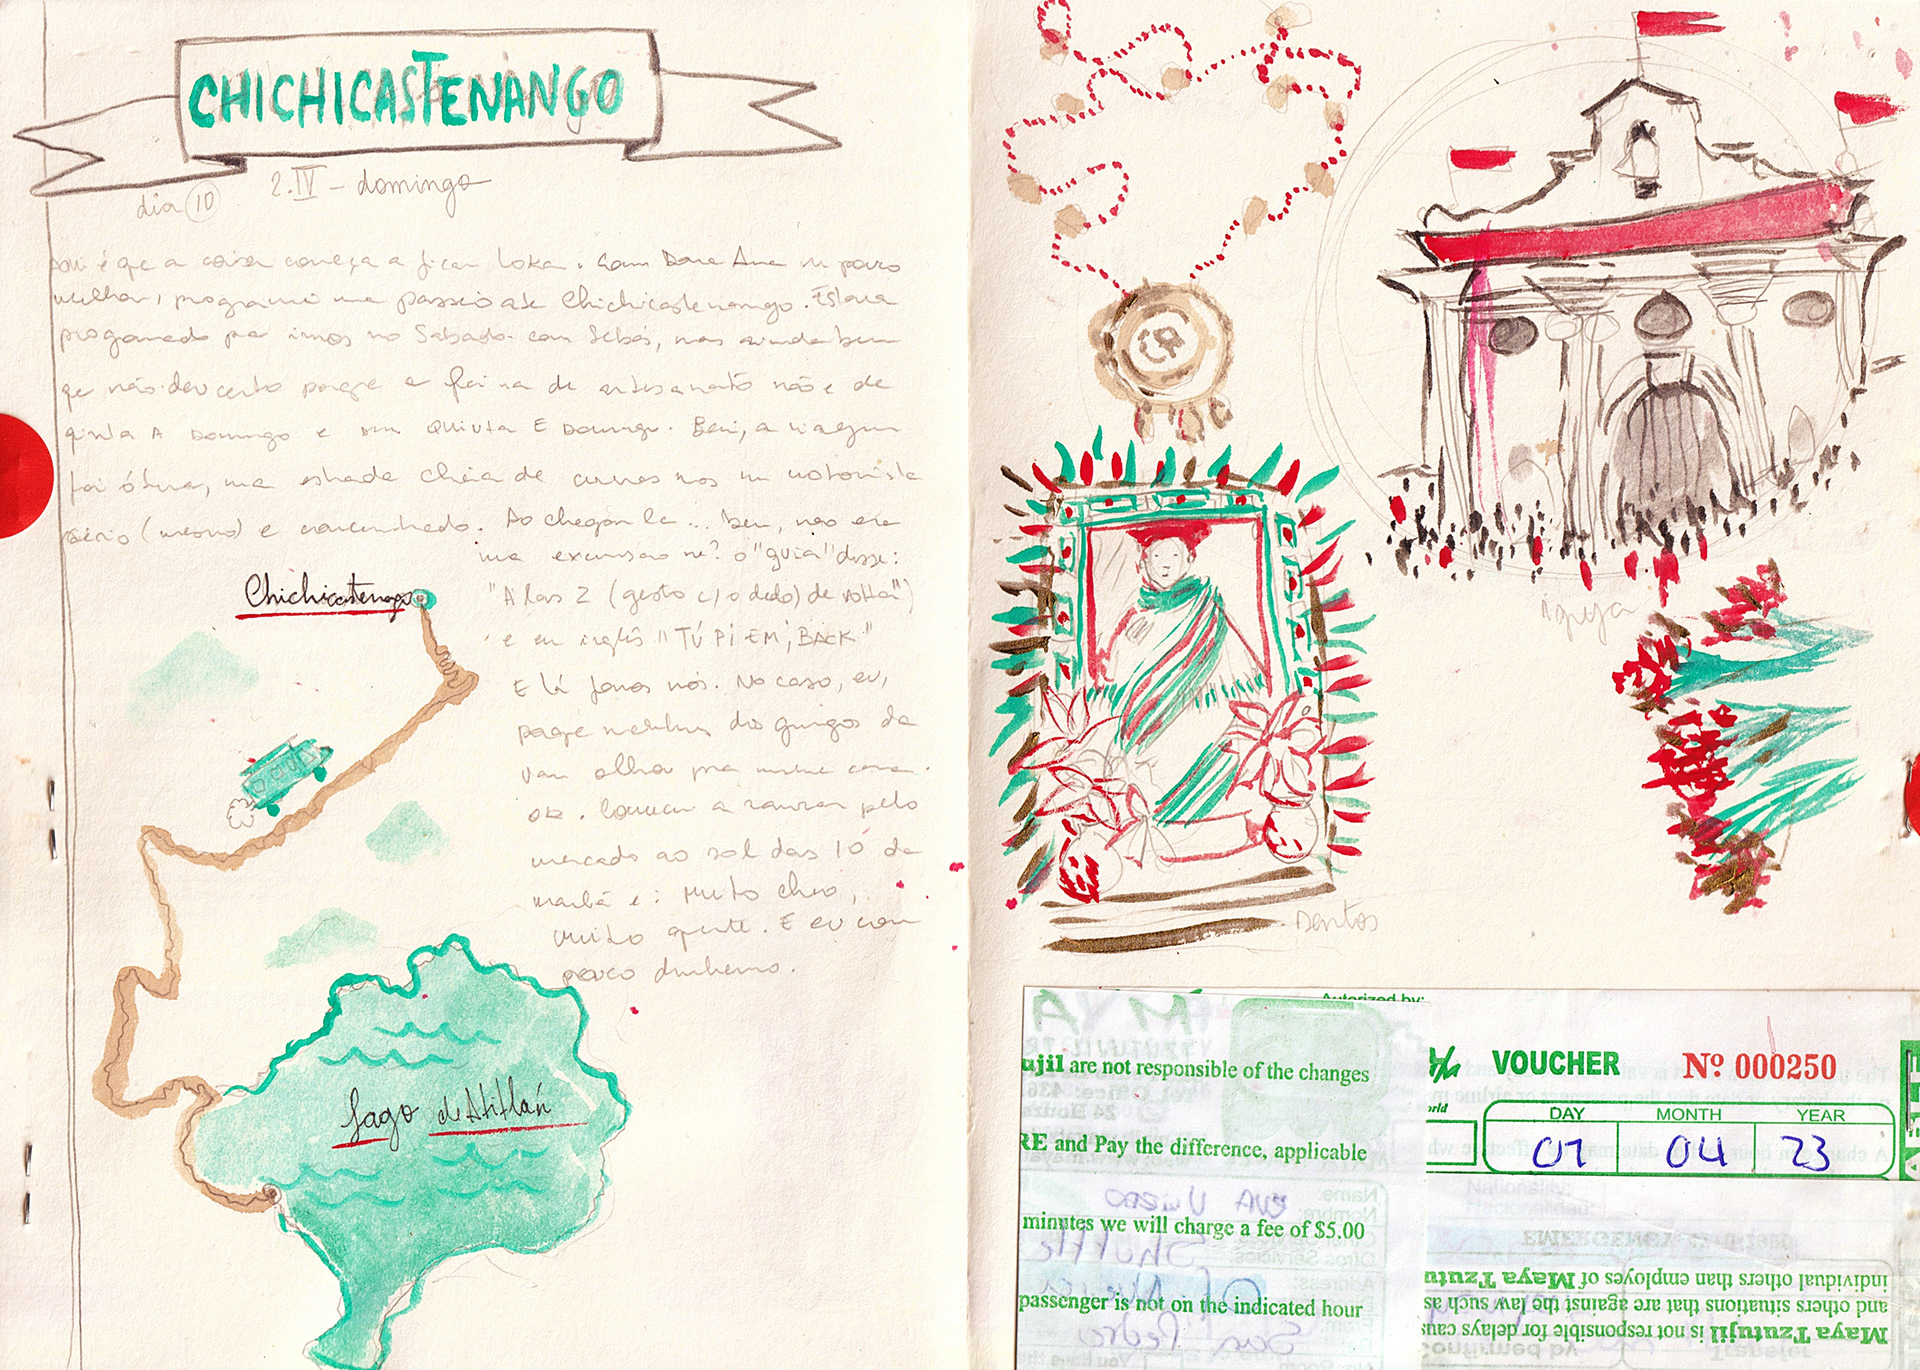 CHICHICASTENANGO
dia 10 2.IV - domingo
Aqui é que a coisa começa a ficar loka. Com Dona Ana um pouco
melhor, programei um passeio até Chichicastenango. Estava
programado pra irmos no Sábado com Sebás, mas ainda bem
que não deu certo porque a feira de artesanato não é de
quinta A Domingo e sim QUINTA E Domingo. Bem, a viagem
foi ótima, uma estrada cheia de curvas mas um motorista
sério (mesmo) e Ao chegar lá... bem, não era
uma excursão né? O "guia" disse:
"A las 2 (gesto c/ o dedo) de volta")
e em inglês "TÚ PI EM, BACK"
E lá fomos nós. No caso, eu,
porque nenhum dos gringos da
van olhou pra minha cara.
ok. Comecei a pelo
mercado ao sol das 10 da
manhã e: Muito cheio,
muita gente. E eu com
pouco dinheiro.
Chichicastenango
Lago de Atitlán
igreja
Santos
Authorized by:
ujil are not responsible of the changes
RE and Pay the difference, applicable
minutes we will charge a fee of $5.00
passenger is not on the indicated hour
VOUCHER Nº 000250
orld
DAY MONTH YEAR
01 04 23
EMERGENCY
individual others than employes of Maya Tzutu
and others situations that are against the law such as
Maya Tzutujil is not responsible for delays caus